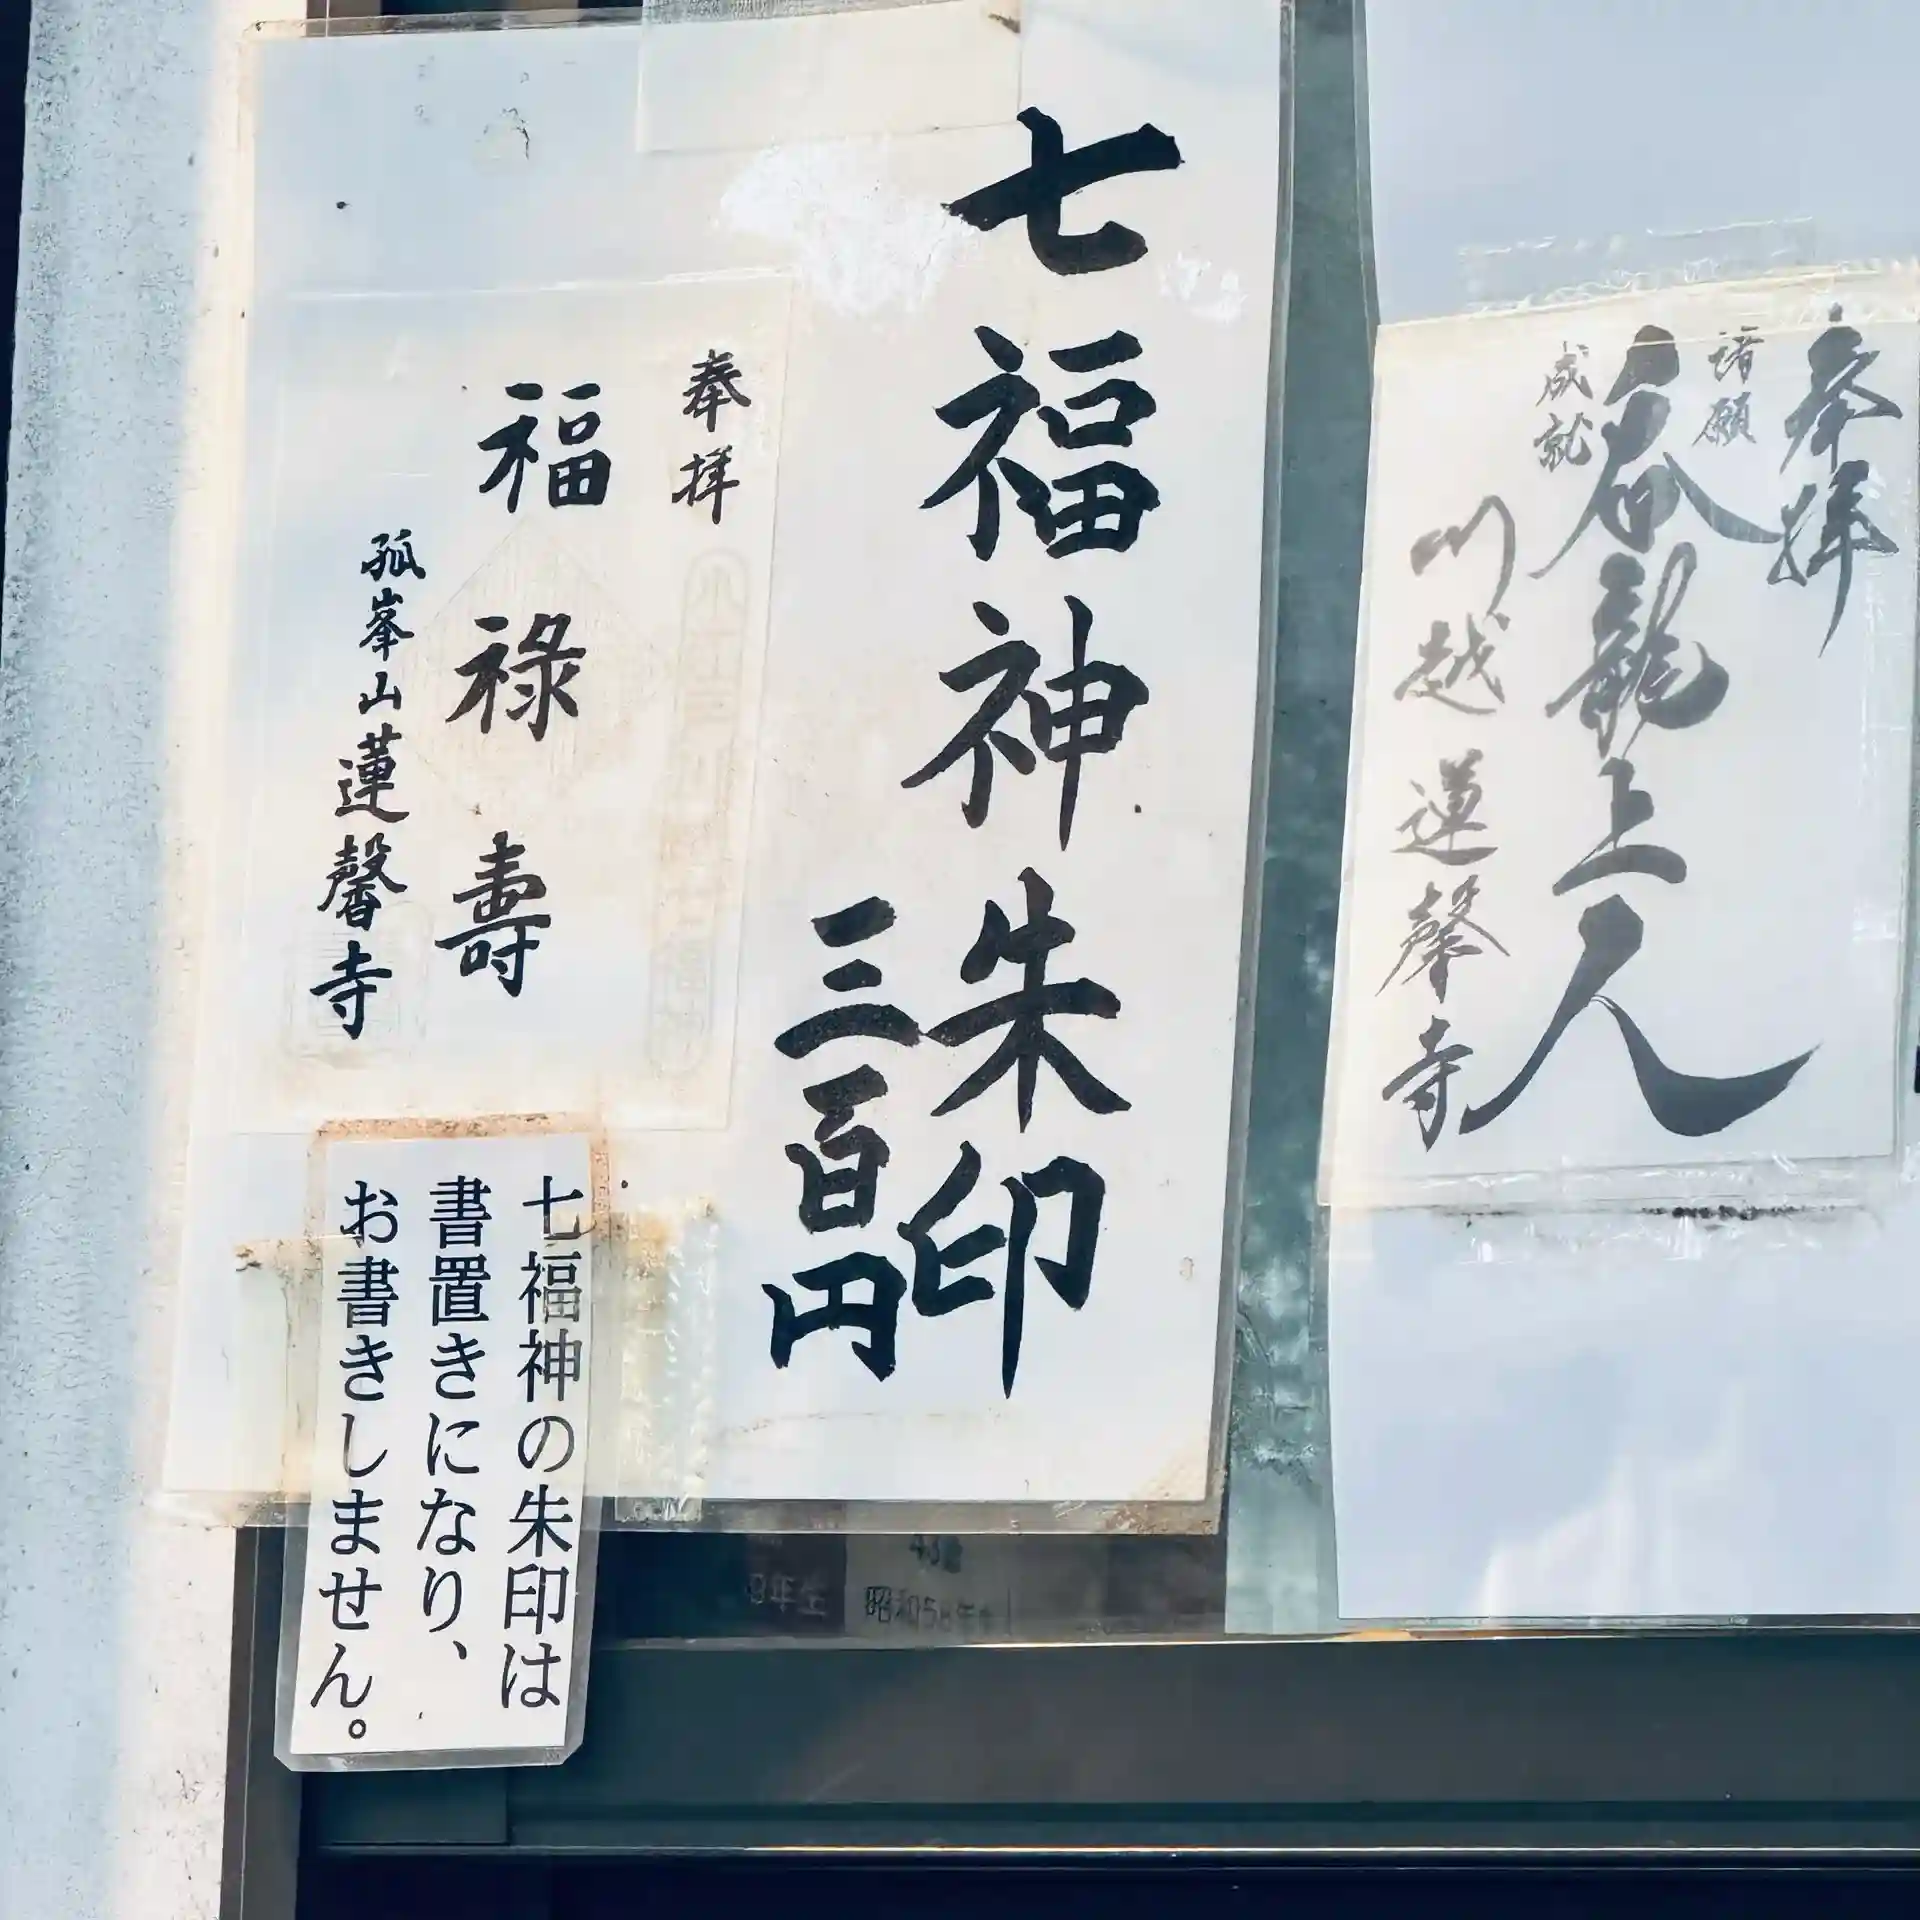 奉拝
諸願
呑龍上人
成就
川越
蓮馨寺
七福神朱印
三百円
奉拝
福禄寿
孤峯山蓮馨寺
七福神の朱印は
書置きになり、
お書きしません。